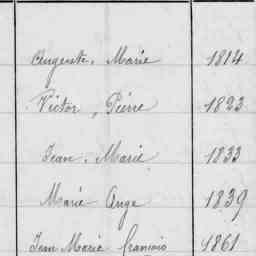 Auguste, Marie 1814
Victor, Pierre 1823
Jean, Marie 1833
Marie Ange 1839
Jean Marie François 1861